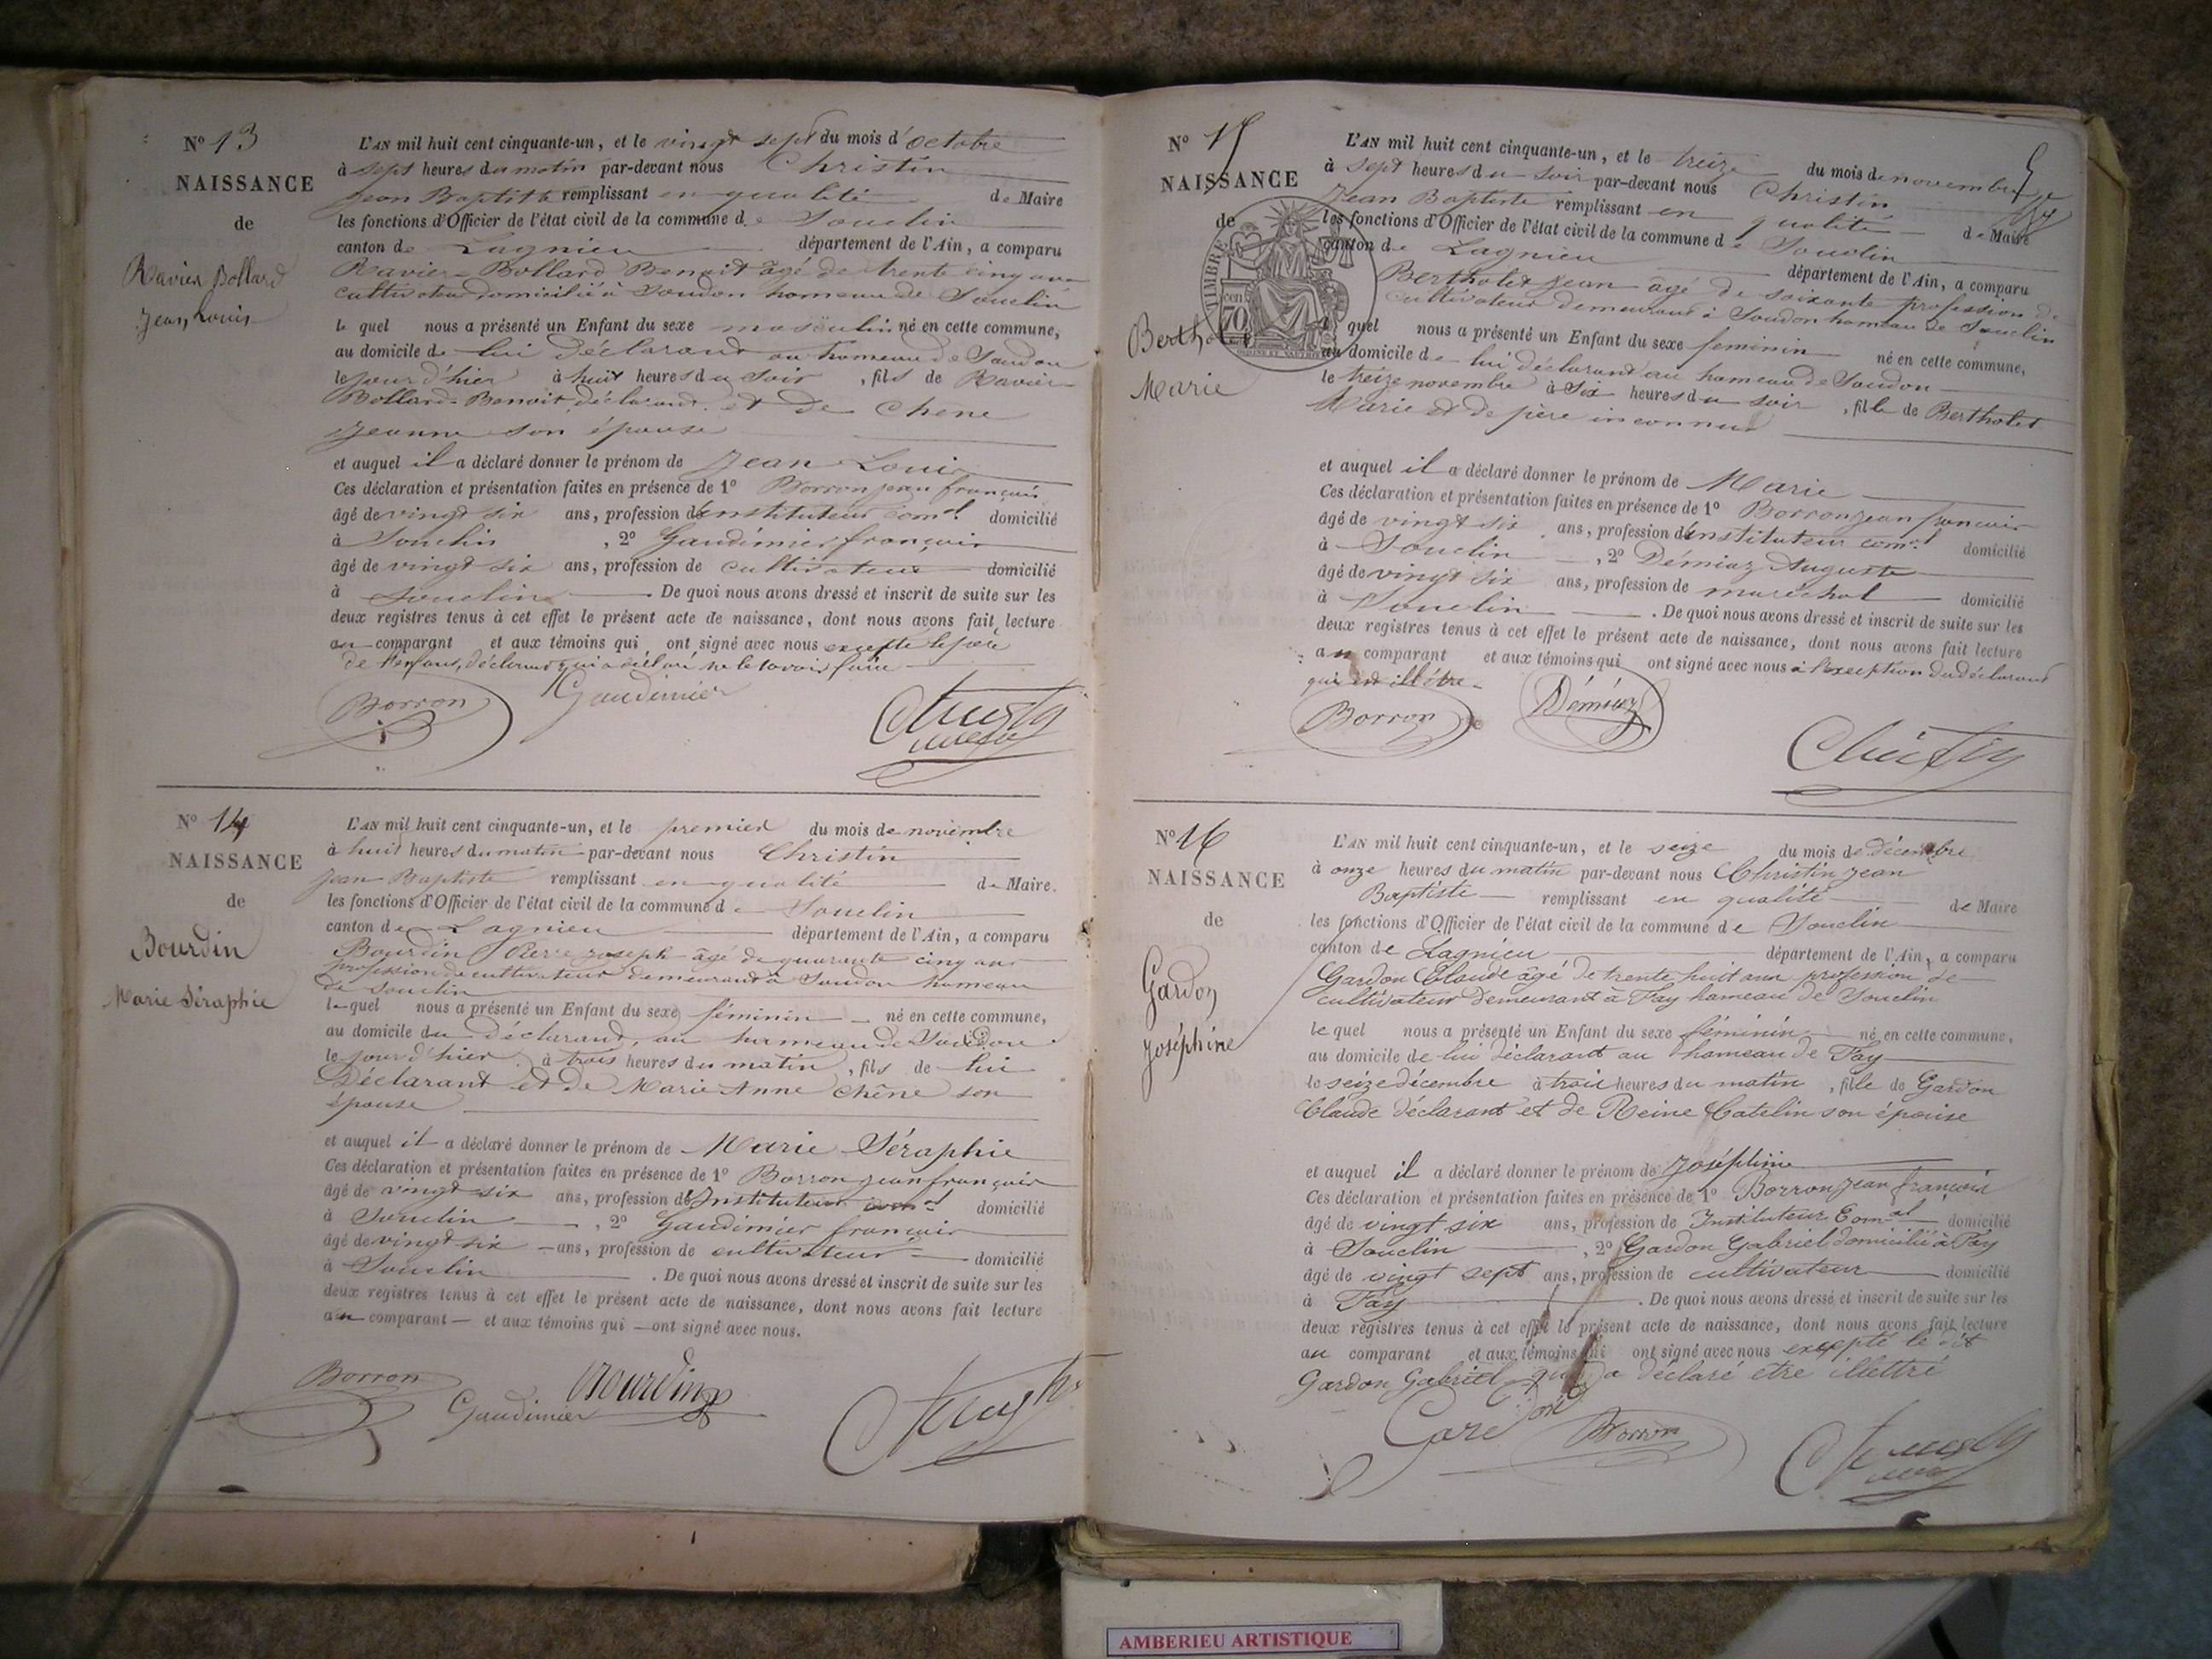 N° 13
NAISSANCE
de
Ravier Bollard
Jean Louis
L'AN mil huit cent cinquante-un, et le vingt sept du mois d'octobre
à sept heures du matin par-devant nous Christin
Jean Baptiste remplissant en qualité de Maire
les fonctions d'Officier de l'état civil de la commune de Souclin
canton de Lagnieu département de l'Ain, a comparu
Ravier-Bollard Benoit âgé de trente cinq ans
cultivateur domicilié à Soudon hameau de Souclin
le quel nous a présenté un Enfant du sexe masculin né en cette commune,
au domicile de lui déclarant au hameau de Soudon
le jour d'hier à huit heures du soir, fils de Ravier
Bollard-Benoit déclarant et de Chêne
Jeanne son épouse
et auquel il a déclaré donner le prénom de Jean Louis
Ces déclaration et présentation faites en présence de 1° Borron jean françois
âgé de vingt six ans, profession d'instituteur comal domicilié
à Souclin, 2° Gaudimier françois
âgé de vingt six ans, profession de cultivateur domicilié
à Souclin. De quoi nous avons dressé et inscrit de suite sur les
deux registres tenus à cet effet le présent acte de naissance, dont nous avons fait lecture
au comparant et aux témoins qui ont signé avec nous excepté le père
de l'enfant, déclarant qui a déclaré ne le savoir faire
Borron Gaudimier Christin
N° 14
NAISSANCE
de
Bourdin
Marie Séraphie
L'AN mil huit cent cinquante-un, et le premier du mois de novembre
à huit heures du matin par-devant nous Christin
Jean Baptiste remplissant en qualité de Maire.
les fonctions d'Officier de l'état civil de la commune de Souclin
canton de Lagnieu département de l'Ain, a comparu
Bourdin Pierre joseph âgé de quarante cinq ans
profession de cultivateur demeurant à Soudon hameau
de Souclin
le quel nous a présenté un Enfant du sexe féminin né en cette commune,
au domicile du déclarant, au hameau de Soudon
le jour d'hier à trois heures du matin, fils de lui
Déclarant et de Marie Anne Chêne son
épouse
et auquel il a déclaré donner le prénom de Marie Séraphie
Ces déclaration et présentation faites en présence de 1° Borron jean françois
âgé de vingt six ans, profession d'Instituteur comal domicilié
à Souclin, 2° Gaudimier françois
âgé de vingt six ans, profession de cultivateur domicilié
à Souclin. De quoi nous avons dressé et inscrit de suite sur les
deux registres tenus à cet effet le présent acte de naissance, dont nous avons fait lecture
au comparant et aux témoins qui ont signé avec nous.
Borron Gaudimier Bourdin Christin
N° 15
NAISSANCE
de
TIMBRE
70
Berthelet
Marie
L'AN mil huit cent cinquante-un, et le treize du mois de novembre
à sept heures du soir par-devant nous Christin
Jean Baptiste remplissant en qualité de Maire
les fonctions d'Officier de l'état civil de la commune de Souclin
canton de Lagnieu département de l'Ain, a comparu
Bertholet Jean âgé de soixante profession de
cultivateur demeurant à Soudon hameau de Souclin
le quel nous a présenté un Enfant du sexe feminin né en cette commune,
au domicile de lui déclarant au hameau de Soudon
le treize novembre à six heures du soir, fille de Bertholet
Marie et de père inconnu
et auquel il a déclaré donner le prénom de Marie
Ces déclaration et présentation faites en présence de 1° Borron jean françois
âgé de vingt six ans, profession d'instituteur comal domicilié
à Souclin, 2° Démiaz Auguste
âgé de vingt six ans, profession de maréchal domicilié
à Souclin. De quoi nous avons dressé et inscrit de suite sur les
deux registres tenus à cet effet le présent acte de naissance, dont nous avons fait lecture
au comparant et aux témoins qui ont signé avec nous à l'exception du déclarant
qui est illétré
Borron Démiaz Christin
N° 16
NAISSANCE
de
Gardon
Joséphine
L'AN mil huit cent cinquante-un, et le seize du mois de décembre
à onze heures du matin par-devant nous Christin Jean
Baptiste remplissant en qualité de Maire
les fonctions d'Officier de l'état civil de la commune de Souclin
canton de Lagnieu département de l'Ain, a comparu
Gardon Claude âgé de trente huit ans profession de
cultivateur demeurant à Fay hameau de Souclin
le quel nous a présenté un Enfant du sexe féminin né en cette commune,
au domicile de lui déclarant au hameau de Fay
le seize décembre à trois heures du matin, fille de Gardon
Claude déclarant et de Reine Catelin son épouse
et auquel il a déclaré donner le prénom de Joséphine
Ces déclaration et présentation faites en présence de 1° Borron Jean françois
âgé de vingt six ans, profession de Instituteur Comal domicilié
à Souclin, 2° Gardon Gabriel domicilié à Fay
âgé de vingt sept ans, profession de cultivateur domicilié
à Fay. De quoi nous avons dressé et inscrit de suite sur les
deux registres tenus à cet effet le présent acte de naissance, dont nous avons fait lecture
au comparant et aux témoins qui ont signé avec nous excepté le dit
Gardon Gabriel qui a déclaré être illettré
Gardon Borron Christin
AMBERIEU ARTISTIQUE